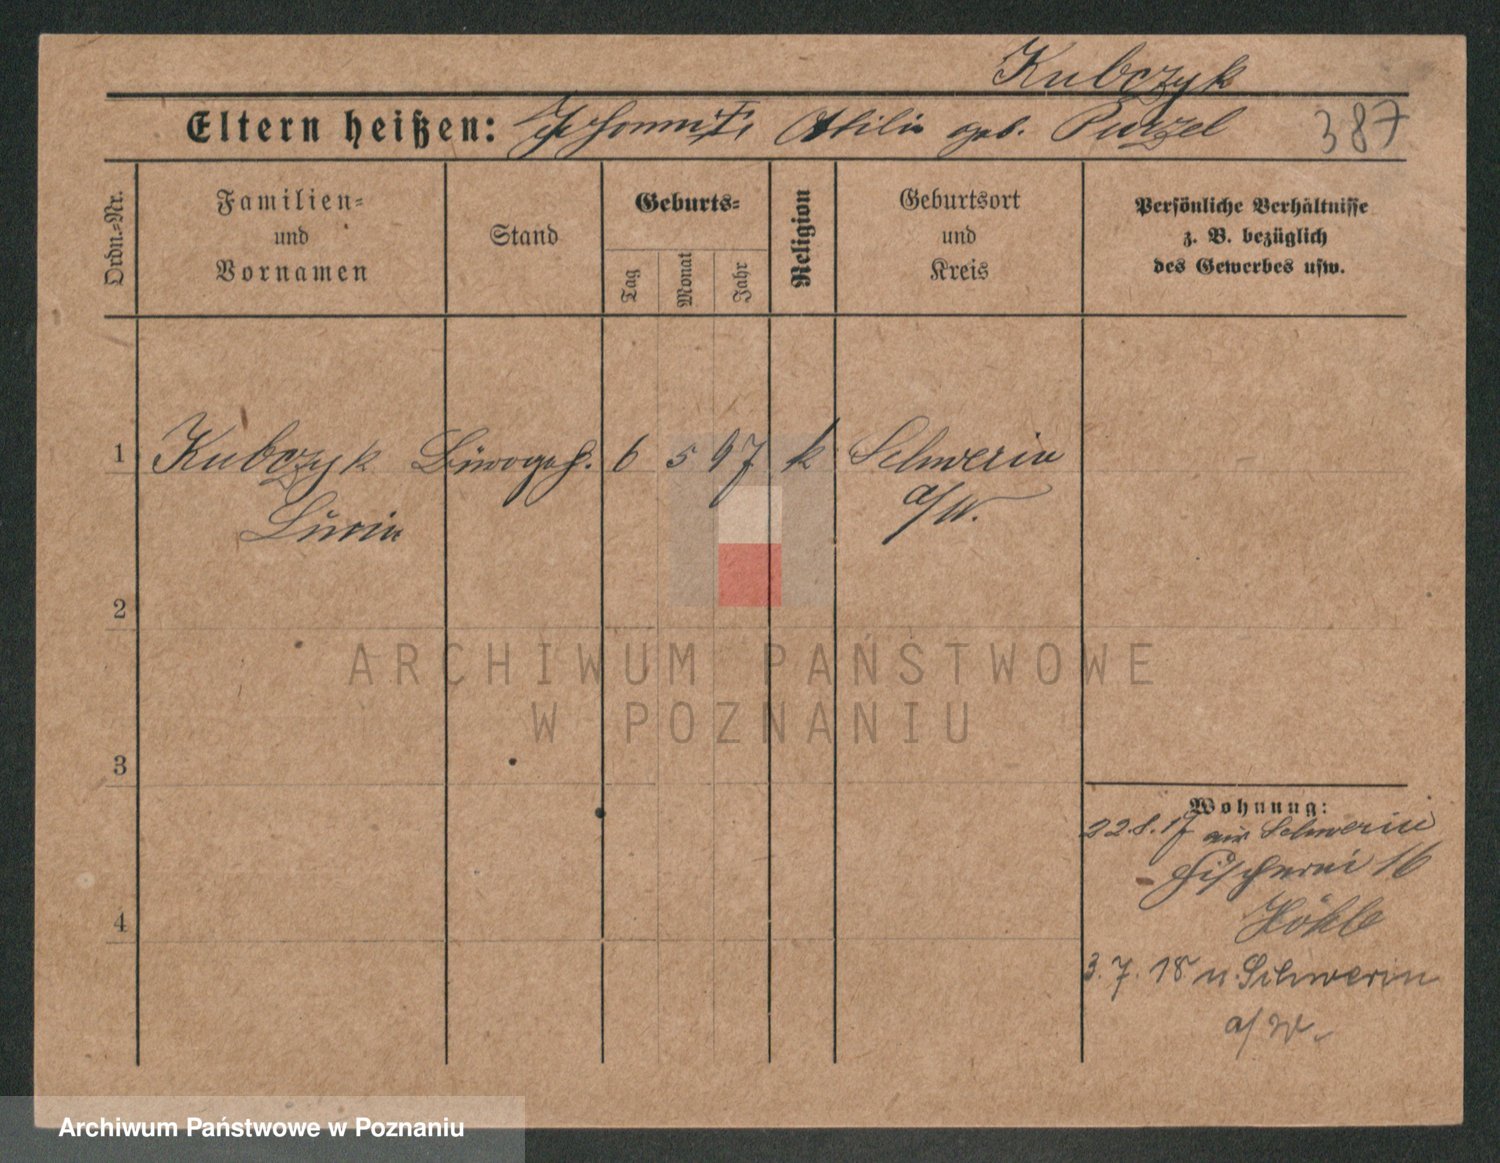 Kubczyk
Eltern heißen: geb. Purzel 387
Ordn.=Nr.
Familien=
und
Vornamen
Stand
Geburts=
Tag
Monat
Jahr
Religion
Geburtsort
und
Kreis
Persönliche Verhältnisse
z. B. bezüglich
des Gewerbes usw.
1 Kubczyk 6 5 97 k Schwerin
a/W.
2
3
4
Wohnung:
22.8.17 aus Schwerin
Fischerei 16
3.7.18 n. Schwerin
a/W.
ARCHIWUM PAŃSTWOWE
W POZNANIU
Archiwum Państwowe w Poznaniu